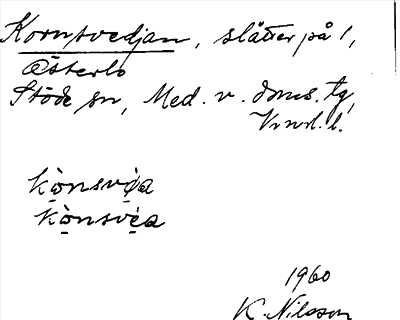 Kornsvedjan, slätter på 1,
Österlo
Stöde sn, Med. v. doms. tg,
kònsvè̱a
kò̱nsvè̱a
1960
K. Nilsson